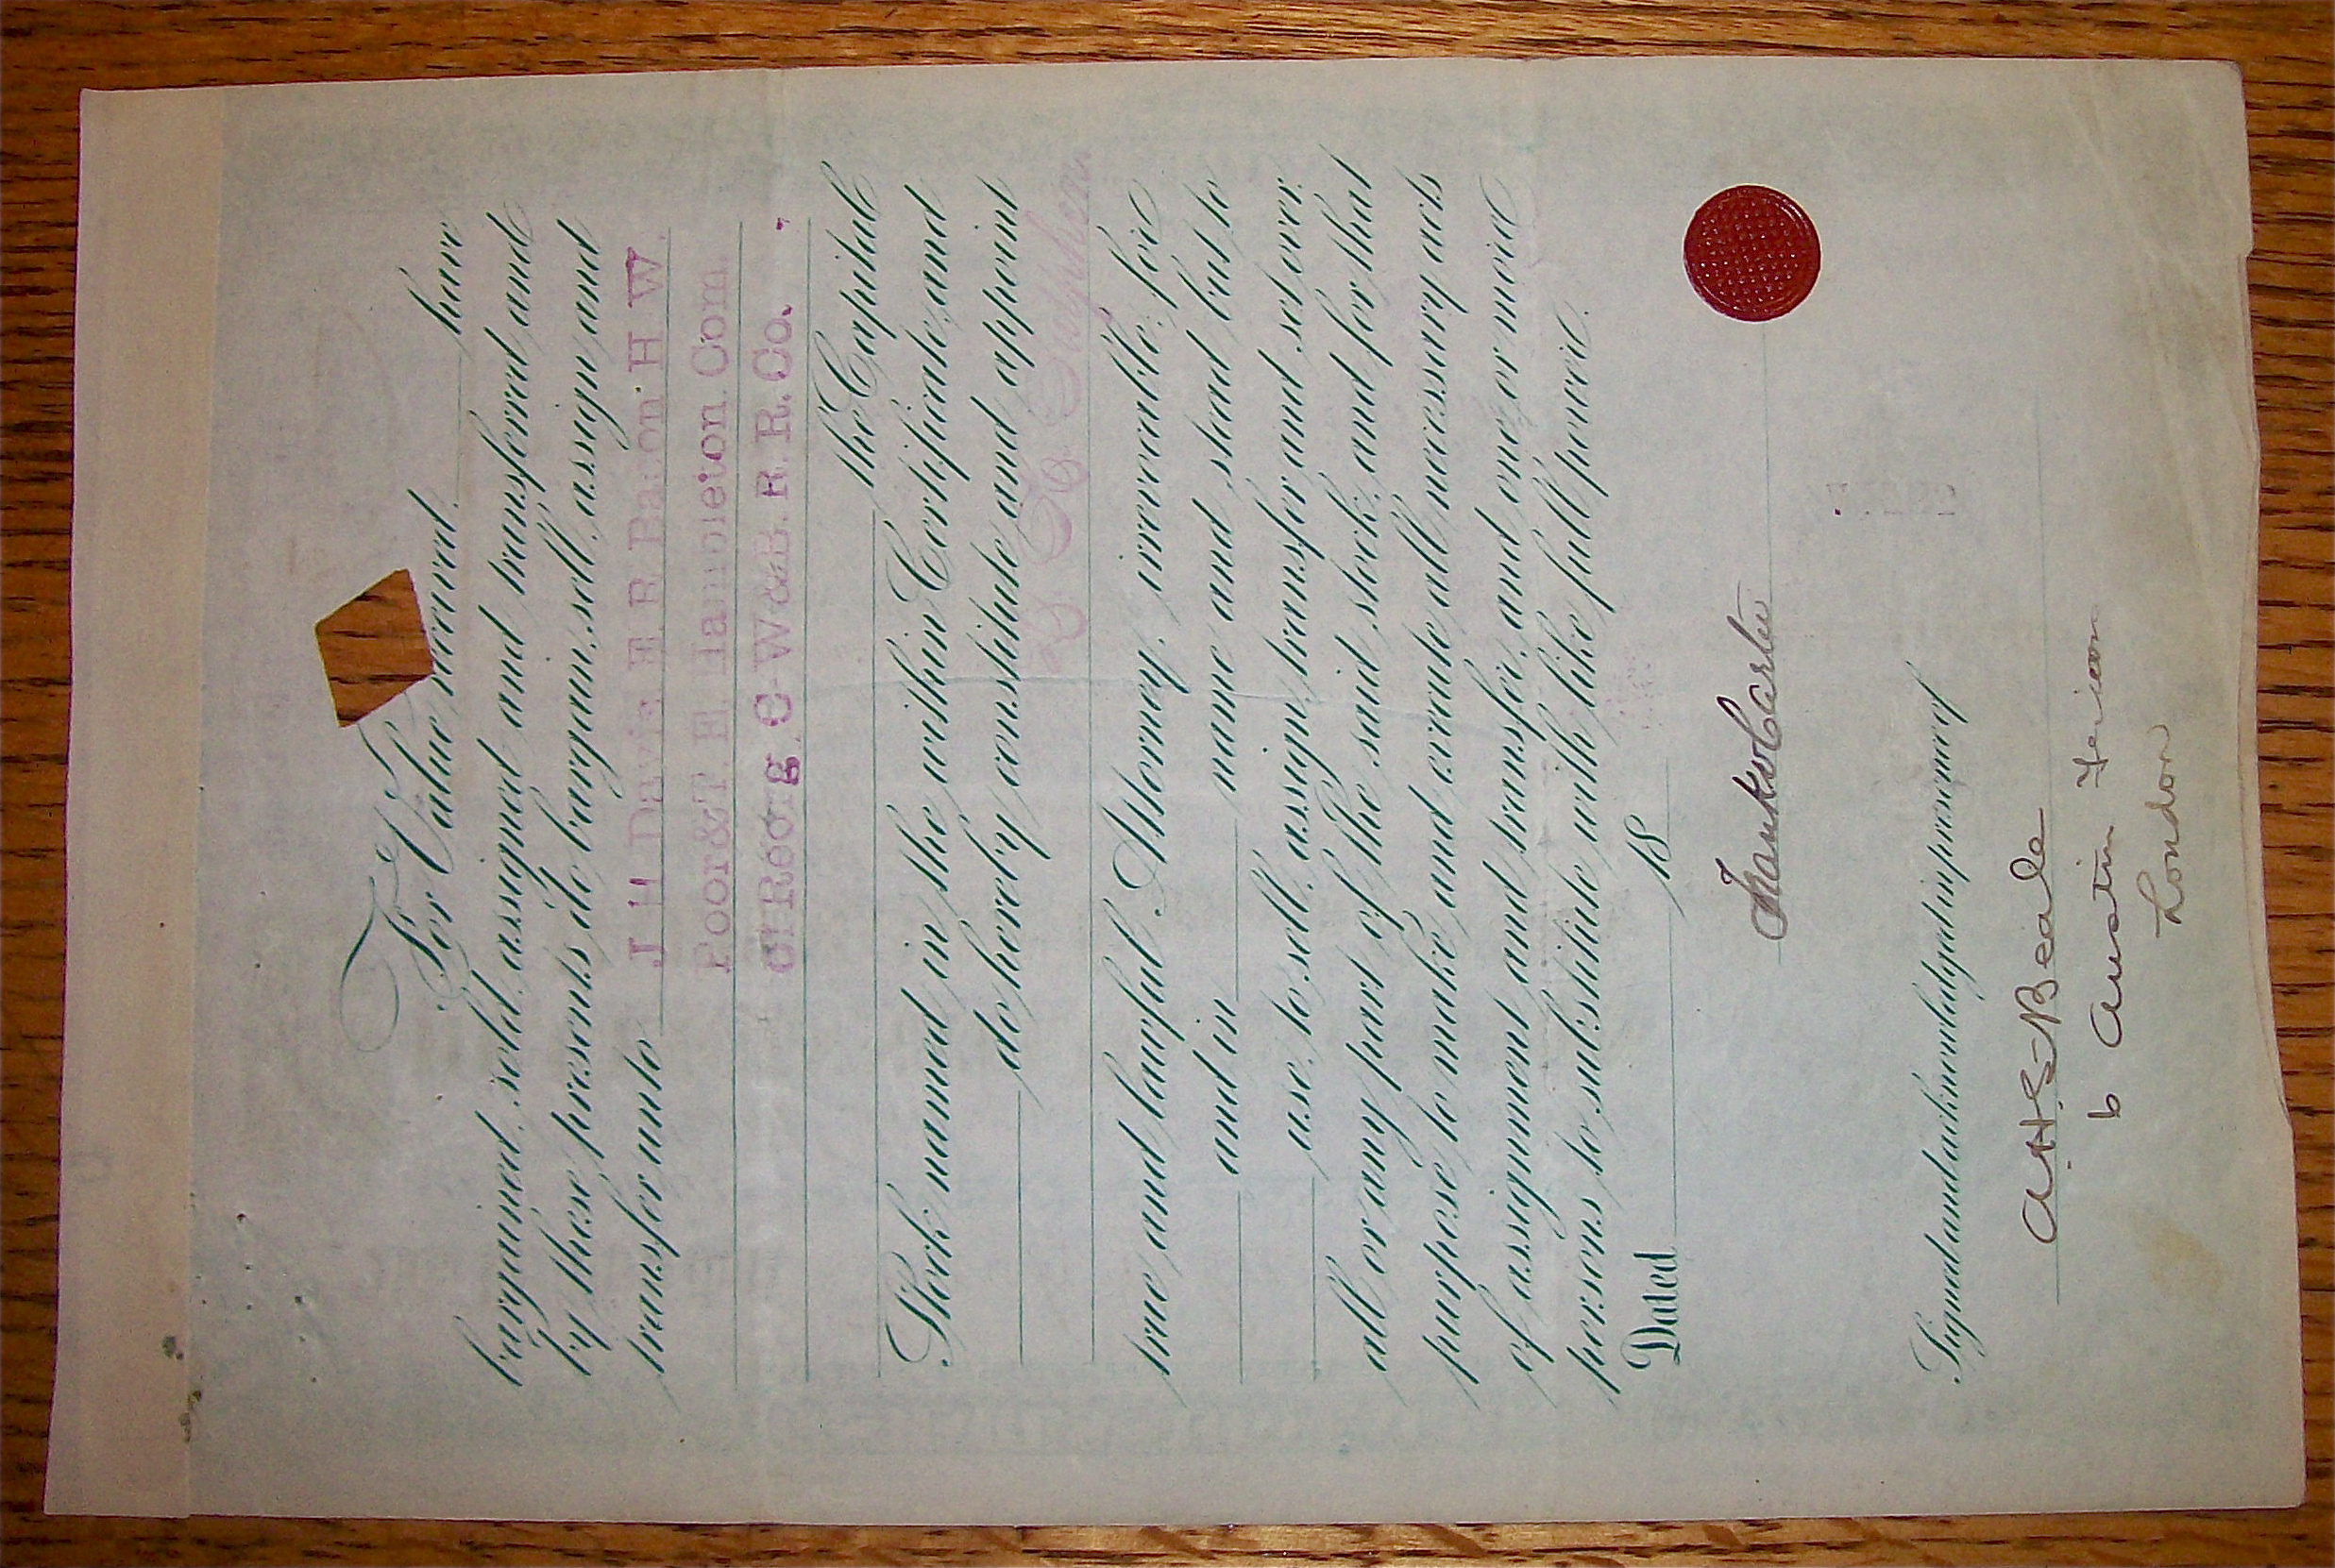 For Value received have
bargained, sold, assigned and transferred, and
by these presents do bargain, sell, assign and
transfer unto J H Davis H W
Poor & T. E. Hambleton. Com.
of Reorg C-W & B. R. R. Co.
the Capital
Stock named in the within Certificate, and
do hereby constitute and appoint
true and lawful Attorney, irrevocable, for
and in name and stead but to
use, to sell, assign, transfer and set over
all or any part of the said stock, and for that
purpose to make and execute all necessary acts
of assignment and transfer, and one or more
persons to substitute with like full power.
Dated 18
Signed and acknowledged in presence of
A. H. S. Beale
6 Austin
London